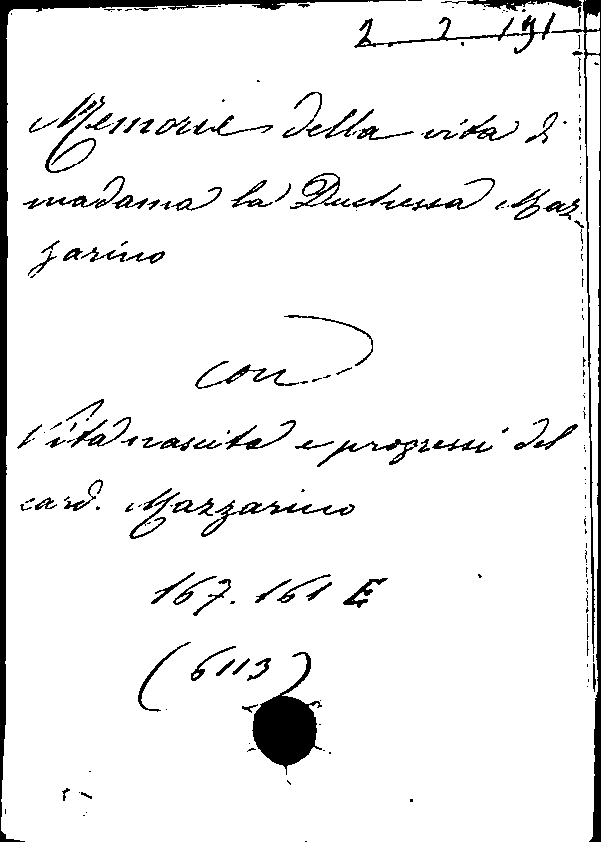 2. 2. 191
Memorie della vita di
madama la Duchessa Maz-
zarino
con
Vita nascita e progressi del
card. Mazzarino
167. 161 E
(6113)